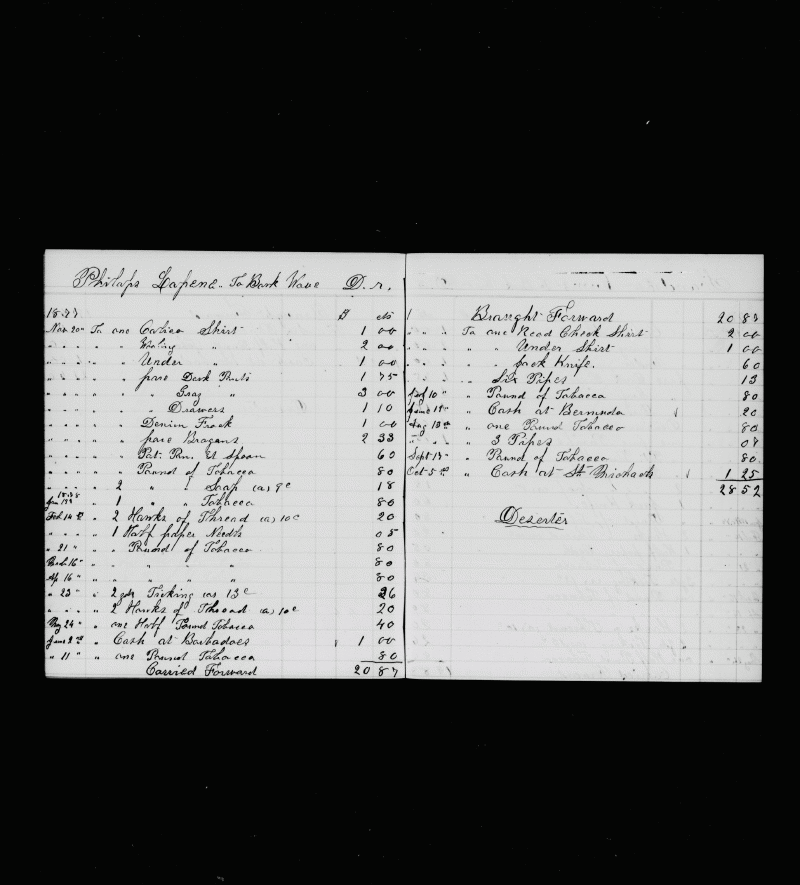 Philaps Lapene. To Bark Wave D. r,
1877 " " " $ cts
Nov. 20th To one Calico Shirt 1 00
" " " " " Wooley " 2 00
" " " " " Under " 1 00
" " " " " pare Desk Pants 1 75
" " " " " " Gray " 3 00
" " " " " " Drawers 1 10
" " " " " Denim Frock 1 00
" " " " " pare Brogans 2 33
" " " " " Pot. Pan. & Spoon 60
" " " " " Pound of Tobacco 80
" " " " 2 " " Soap (a) 9c 18
1878
Jan 13th " 1 " " Tobacco 80
Feb. 14th " 2 Hanks of Thread (a) 10c 20
" " " " 1 Half paper Needls 05
" 21 " " Pound of Tobacco 80
March 16 " " " " " 80
Ap 16 " " " " " 80
" 23 " " 2 yds Ticking (a) 13c 26
" " " " 2 Hanks of Thread (a) 10c 20
May 24 " " one Half Pound Tobacco 40
June 2nd " Cash at Barbadoes 1 00
" 11 " " one Pound Tobacco 80
Carried Forward 20 87
Braught Forward 20 87
" " " To one Read Check Shirt 2 00
" " " " " Under Shirt 1 00
" " " " " Jack Knife. 60
" " " " Six Pipes 13
10 " " Pound of Tobacco 80
June 19 " " Cash at Bermuda 20
Aug 13th " one Pound Tobacco 80
" " " 3 Pipes 07
Sept 13 " " Pound of Tobacco 80
Oct 5th " Cash at St. Michaels 1 25
28 52
Deserter